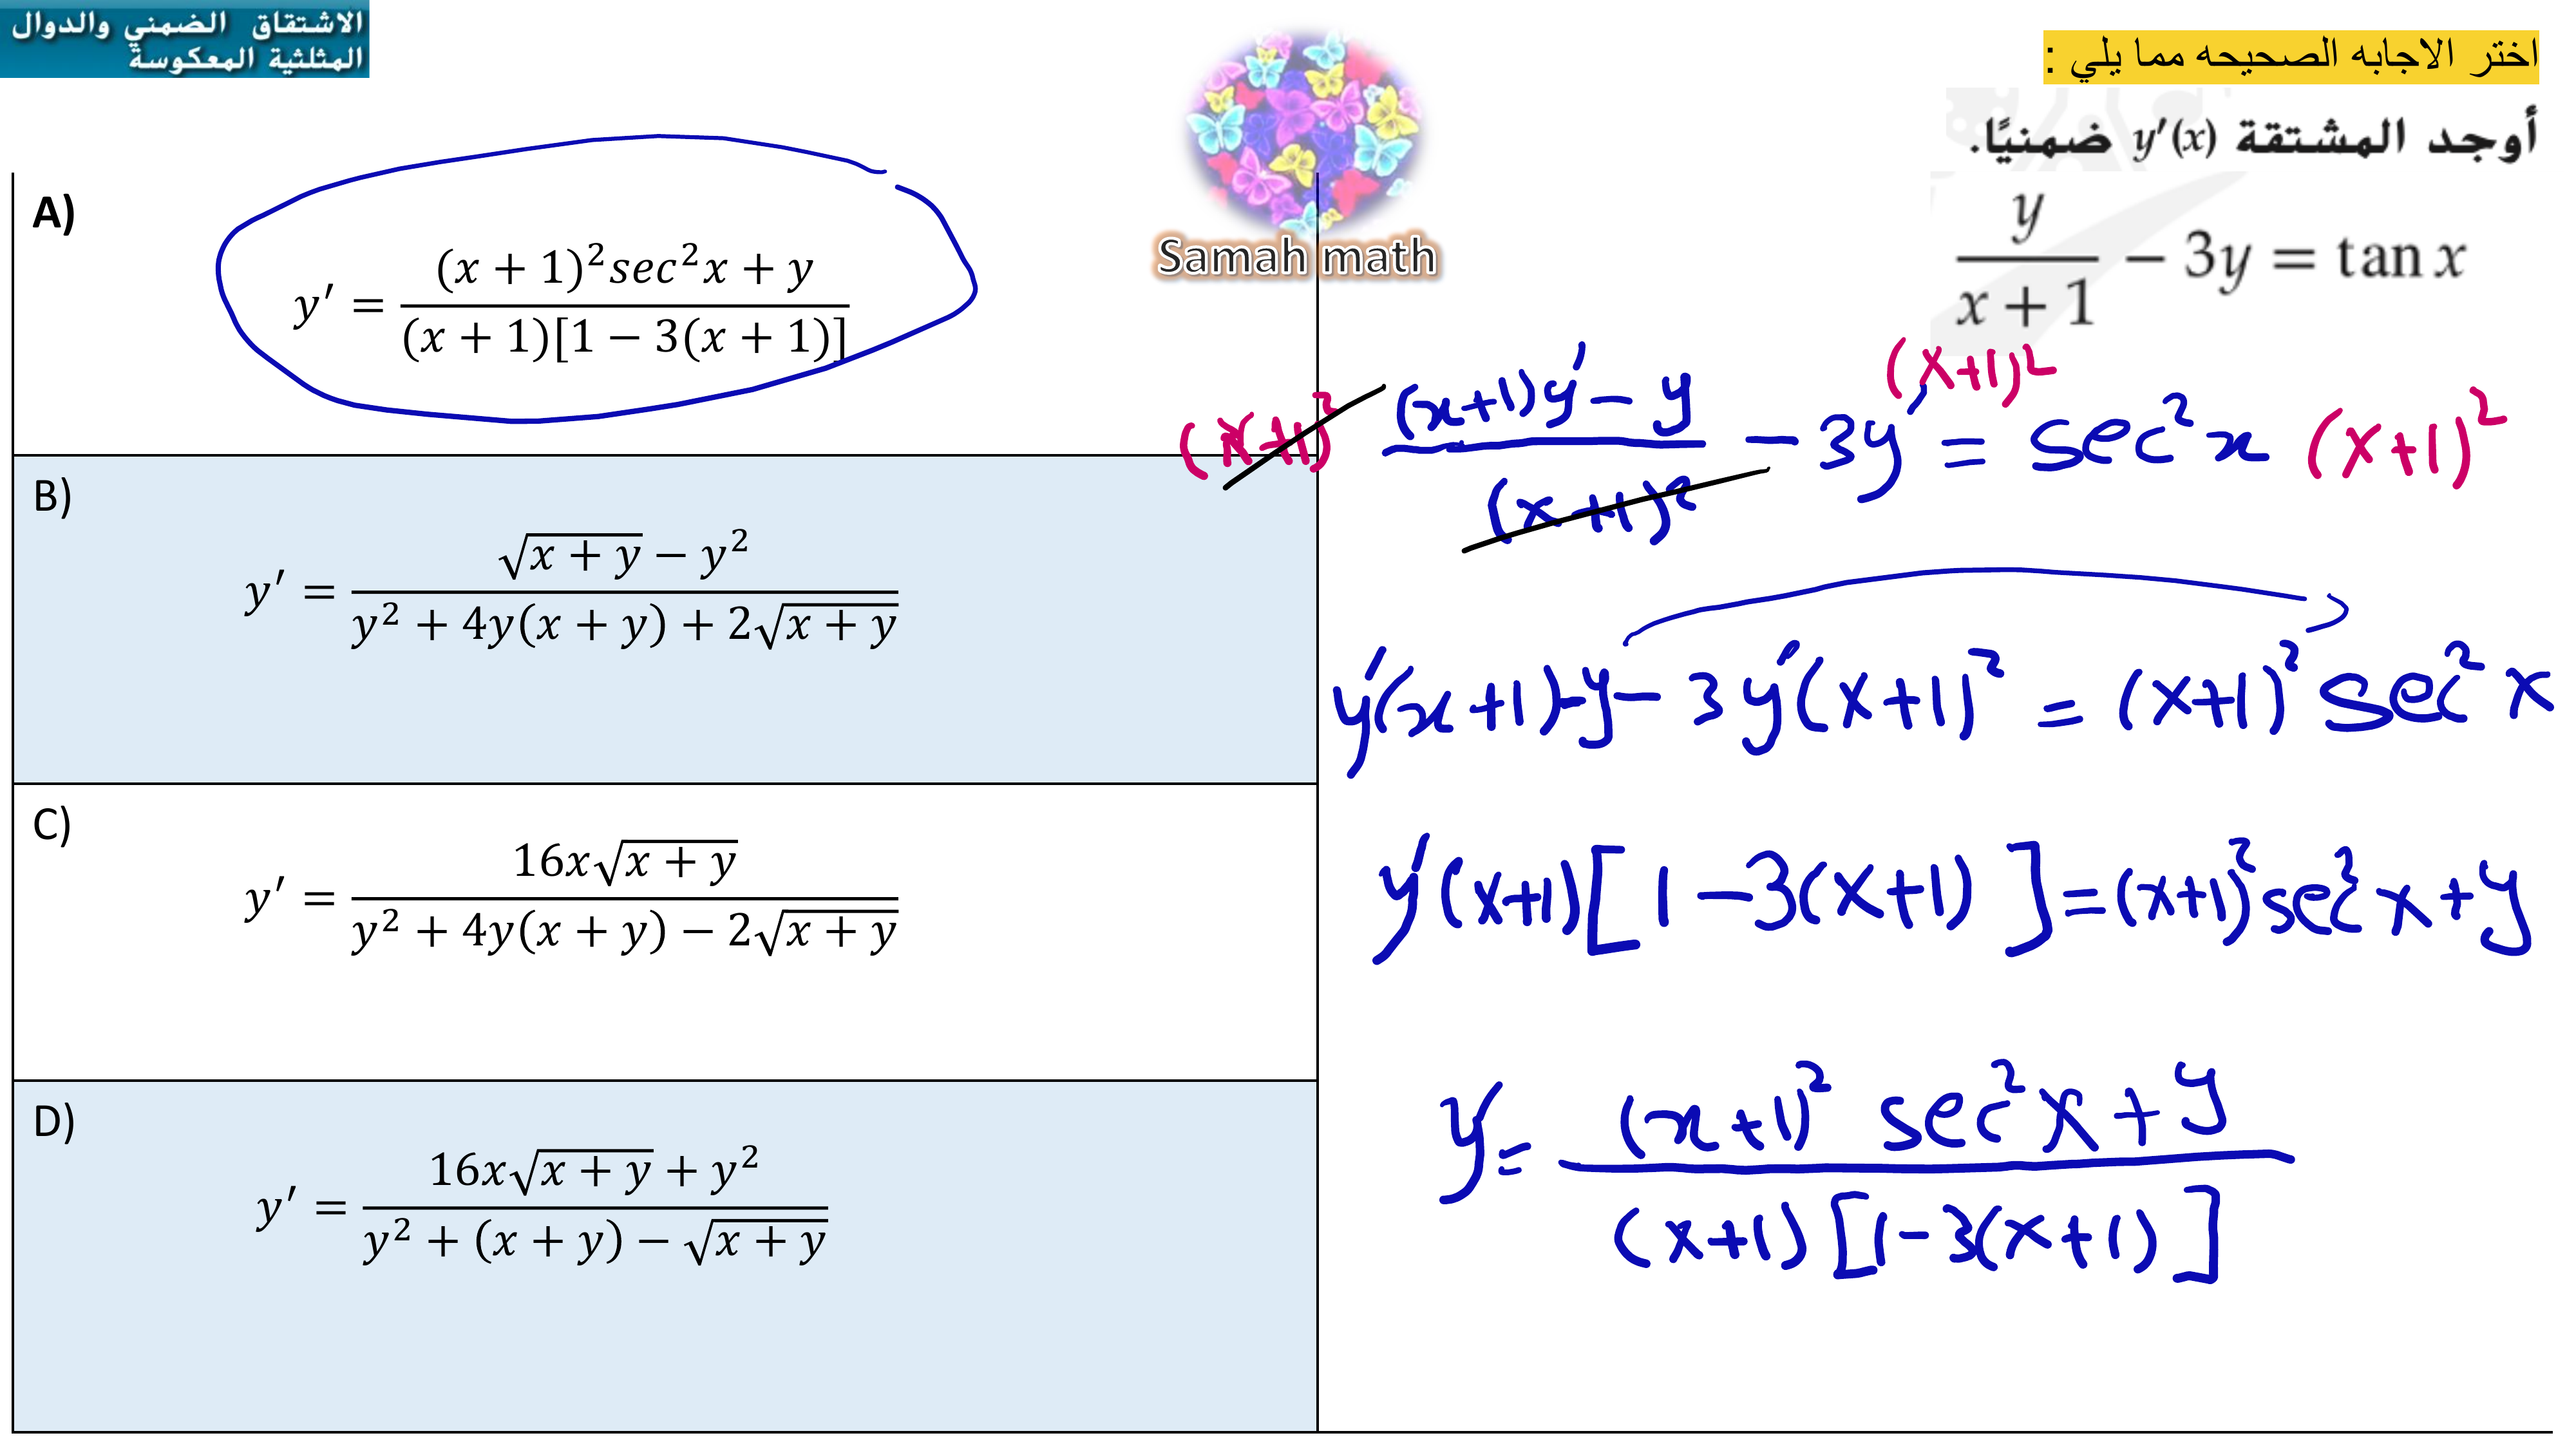 الاشتقاق الضمني والدوال
المثلثية المعكوسة
Samah math
اختر الاجابه الصحيحه مما يلي :
أوجد المشتقة y′(x) ضمنيًا.
y/(x + 1) − 3y = tan x
A)
y′ = ((x + 1)²sec²x + y)/((x + 1)[1 − 3(x + 1)])
B)
y′ = (√(x + y) − y²)/(y² + 4y(x + y) + 2√(x + y))
C)
y′ = (16x√(x + y))/(y² + 4y(x + y) − 2√(x + y))
D)
y′ = (16x√(x + y) + y²)/(y² + (x + y) − √(x + y))
(x+1)² ((x+1)y′ − y)/(x+1)² − 3y′ (x+1)² = sec²x (x+1)²
y′(x+1) − y − 3y′(x+1)² = (x+1)² sec²x
y′(x+1)[1 − 3(x+1)] = (x+1)² sec²x + y
y′ = ((x+1)² sec²x + y)/((x+1)[1 − 3(x+1)])